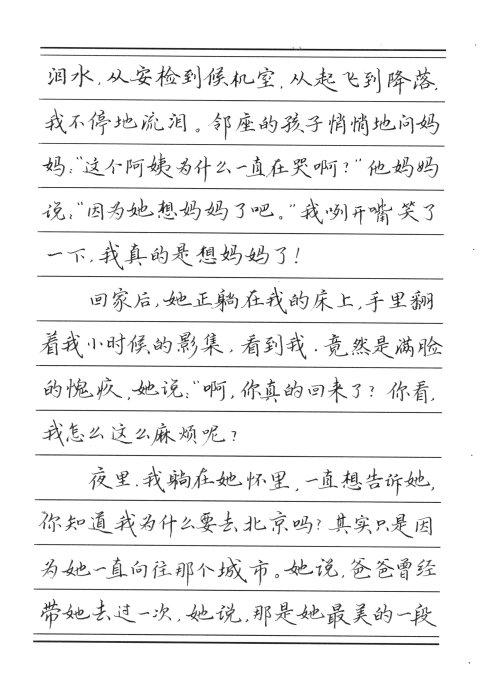 泪水,从安检到候机室,从起飞到降落,
我不停地流泪。邻座的孩子悄悄地问妈
妈:“这个阿姨为什么一直在哭啊?”他妈妈
说:“因为她想妈妈了吧。”我咧开嘴笑了
一下,我真的是想妈妈了!
回家后,她正躺在我的床上,手里翻
着我小时候的影集,看到我,竟然是满脸
的愧疚,她说:“啊,你真的回来了?你看,
我怎么这么麻烦呢?
夜里,我躺在她怀里,一直想告诉她,
你知道我为什么要去北京吗?其实只是因
为她一直向往那个城市。她说,爸爸曾经
带她去过一次,她说,那是她最美的一段